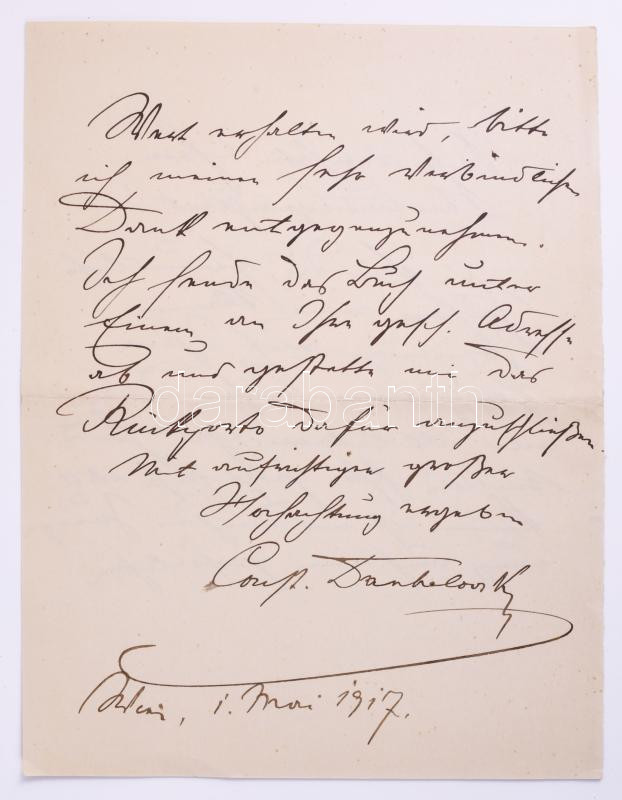 Wert erhalten wird, bitte
ich meinen sehr verbindlichen
Dank entgegenzunehmen.
Ich sende das Buch unter
Einem an Ihre gesch. Adresse
ab und gestatte mir das
Rückporto dafür anzuschließen.
Mit aufrichtiger großer
Hochachtung ergeben
Const. Danhelovsky
Wien, 1. Mai 1917.
darabanth